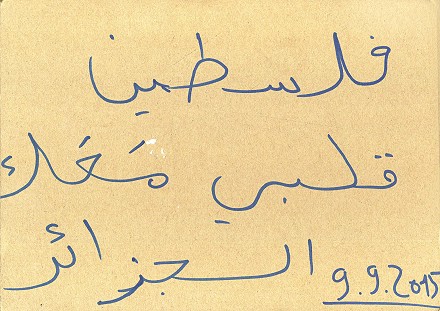 فلسطين
قلبي مَعَك
الجزائر 9.9.2015